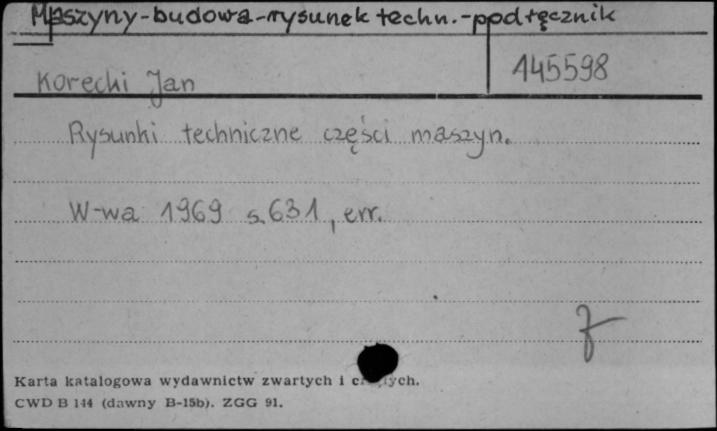 Maszyny-budowa-rysunek techn.-podręcznik
145598
Korecki Jan
Rysunki techniczne części maszyn.
W-wa 1969 s. 631, err.
Karta katalogowa wydawnictw zwartych i
CWD B 144 (dawny B-15b). ZGG 91.